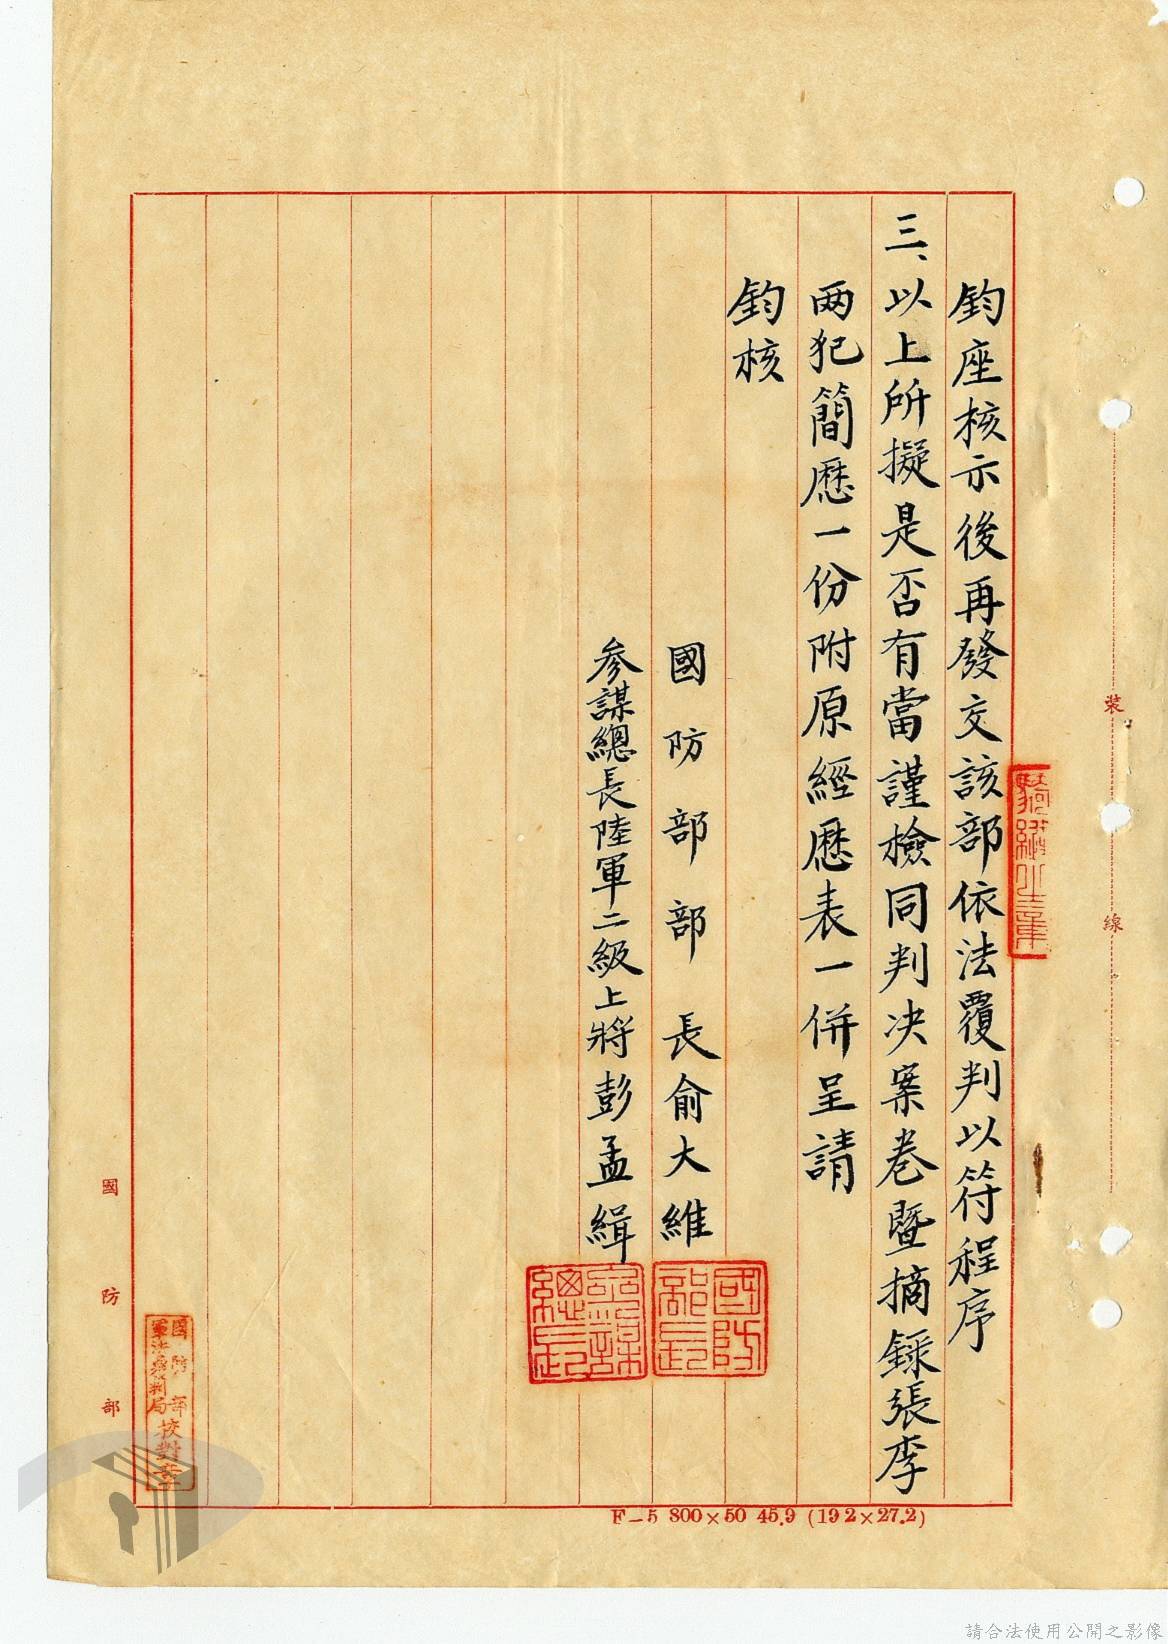 鈞座核示後再發交該部依法覆判以符程序
三、以上所擬是否有當謹檢同判决案卷暨摘錄張李
兩犯簡歷一份附原經歷表一併呈請
鈞核
國防部部長俞大維
國防部長
參謀總長陸軍二級上將彭孟緝
參謀總長
騎縫章
裝
線
國防部
國防部軍法覆判局校對章
F-5 800×50 45.9 (19.2×27.2)
請合法使用公開之影像